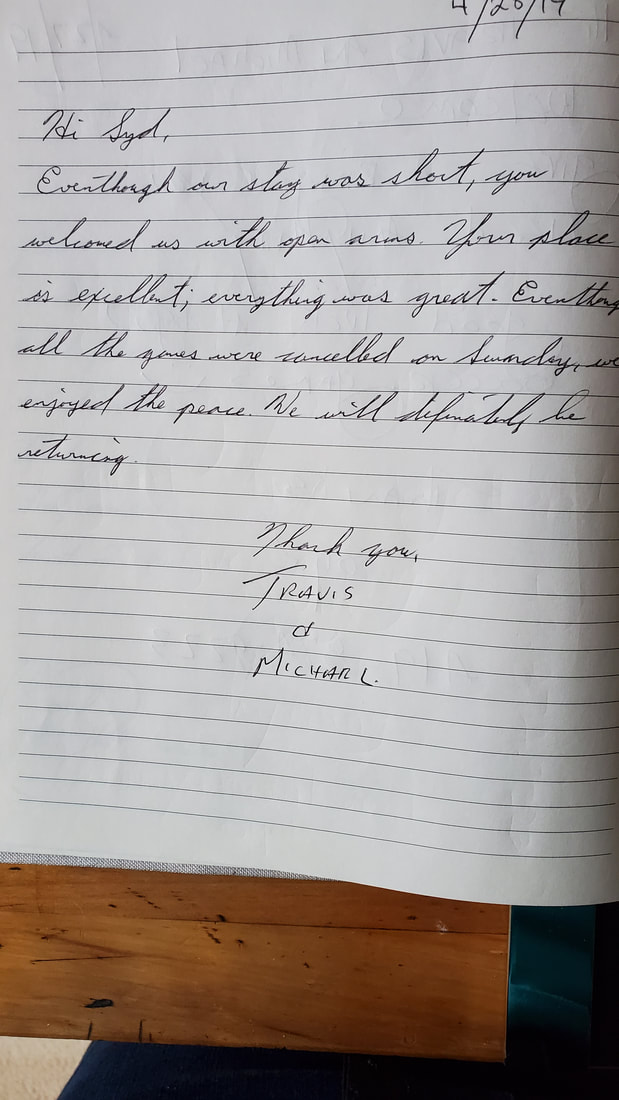 4/20/19
Hi Syd,
Eventhough our stay was short, you
welcomed us with open arms. Your place
is excellent; everything was great. Eventhoug
all the games were cancelled on Sunday, we
enjoyed the peace. We will definately be
returning.
Thank you,
TRAVIS
&
MICHAEL.